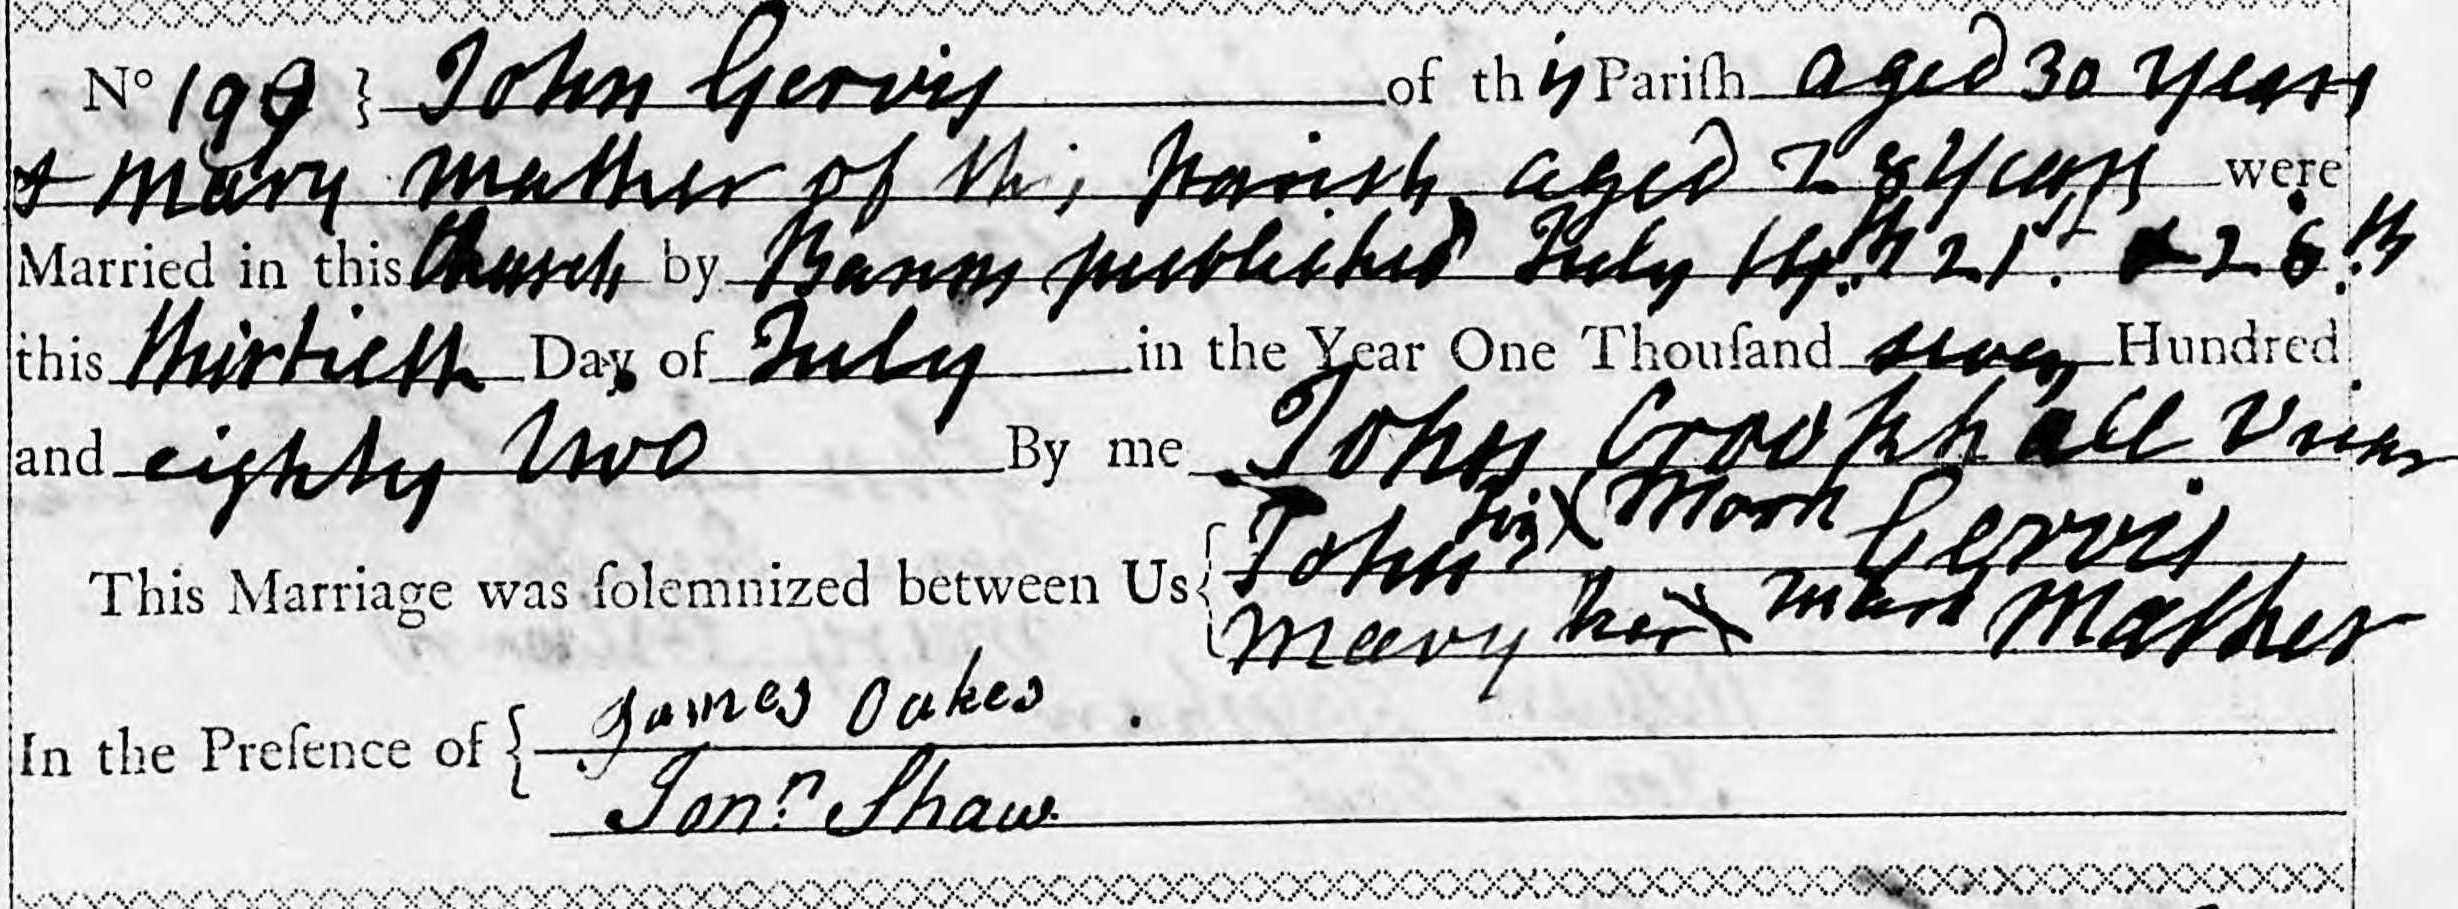 No 199 } John Gervis of this Parish aged 30 years
& Mary Mather of this Parish aged 28 years were
Married in this Church by Banns published July 14.th 21st. & 28.th
this thirtieth Day of July in the Year One Thousand seven Hundred
and eighty two By me John Crookhall Vicar
This Marriage was solemnized between Us { John his X Mark Gervis
Mary her X mark Mather
In the Presence of { James Oakes
Jonn. Shaw